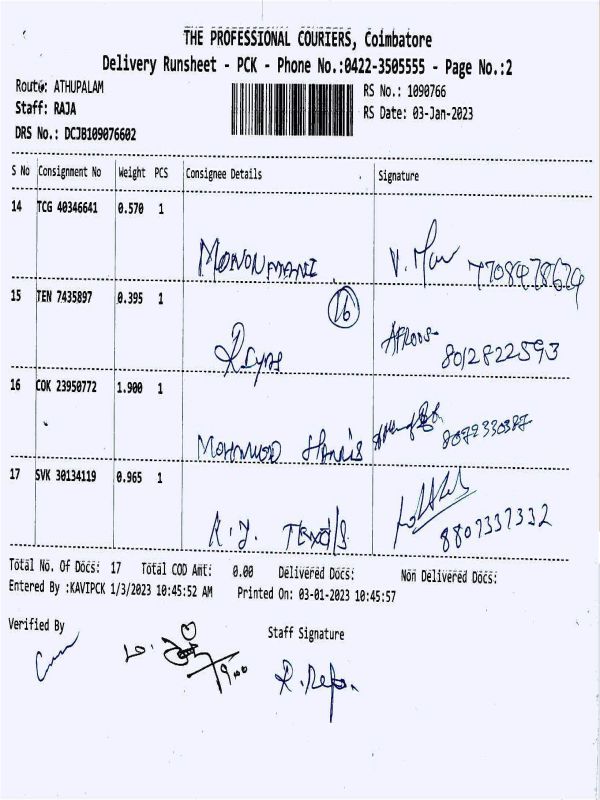 THE PROFESSIONAL COURIERS, Coimbatore
Delivery Runsheet - PCK - Phone No.:0422-3505555 - Page No.:2
Route: ATHUPALAM
RS No.: 1090766
Staff: RAJA
RS Date: 03-Jan-2023
DRS No.: DCJB109076602
S No Consignment No Weight PCS Consignee Details Signature
14 TCG 40346641 0.570 1
MONONMANI V. 7708478679
15 TEN 7435897 0.395 1
16
Riyas AFROOS 8012822593
16 COK 23950772 1.900 1
MOHAMMAD HARRIS 8072330387
17 SVK 30134119 0.965 1
R.Y. TEXTILS 8807337332
Total No. Of Docs: 17 Total COD Amt: 0.00 Delivered Docs: Non Delivered Docs:
Entered By :KAVIPCK 1/3/2023 10:45:52 AM Printed On: 03-01-2023 10:45:57
Verified By
Staff Signature